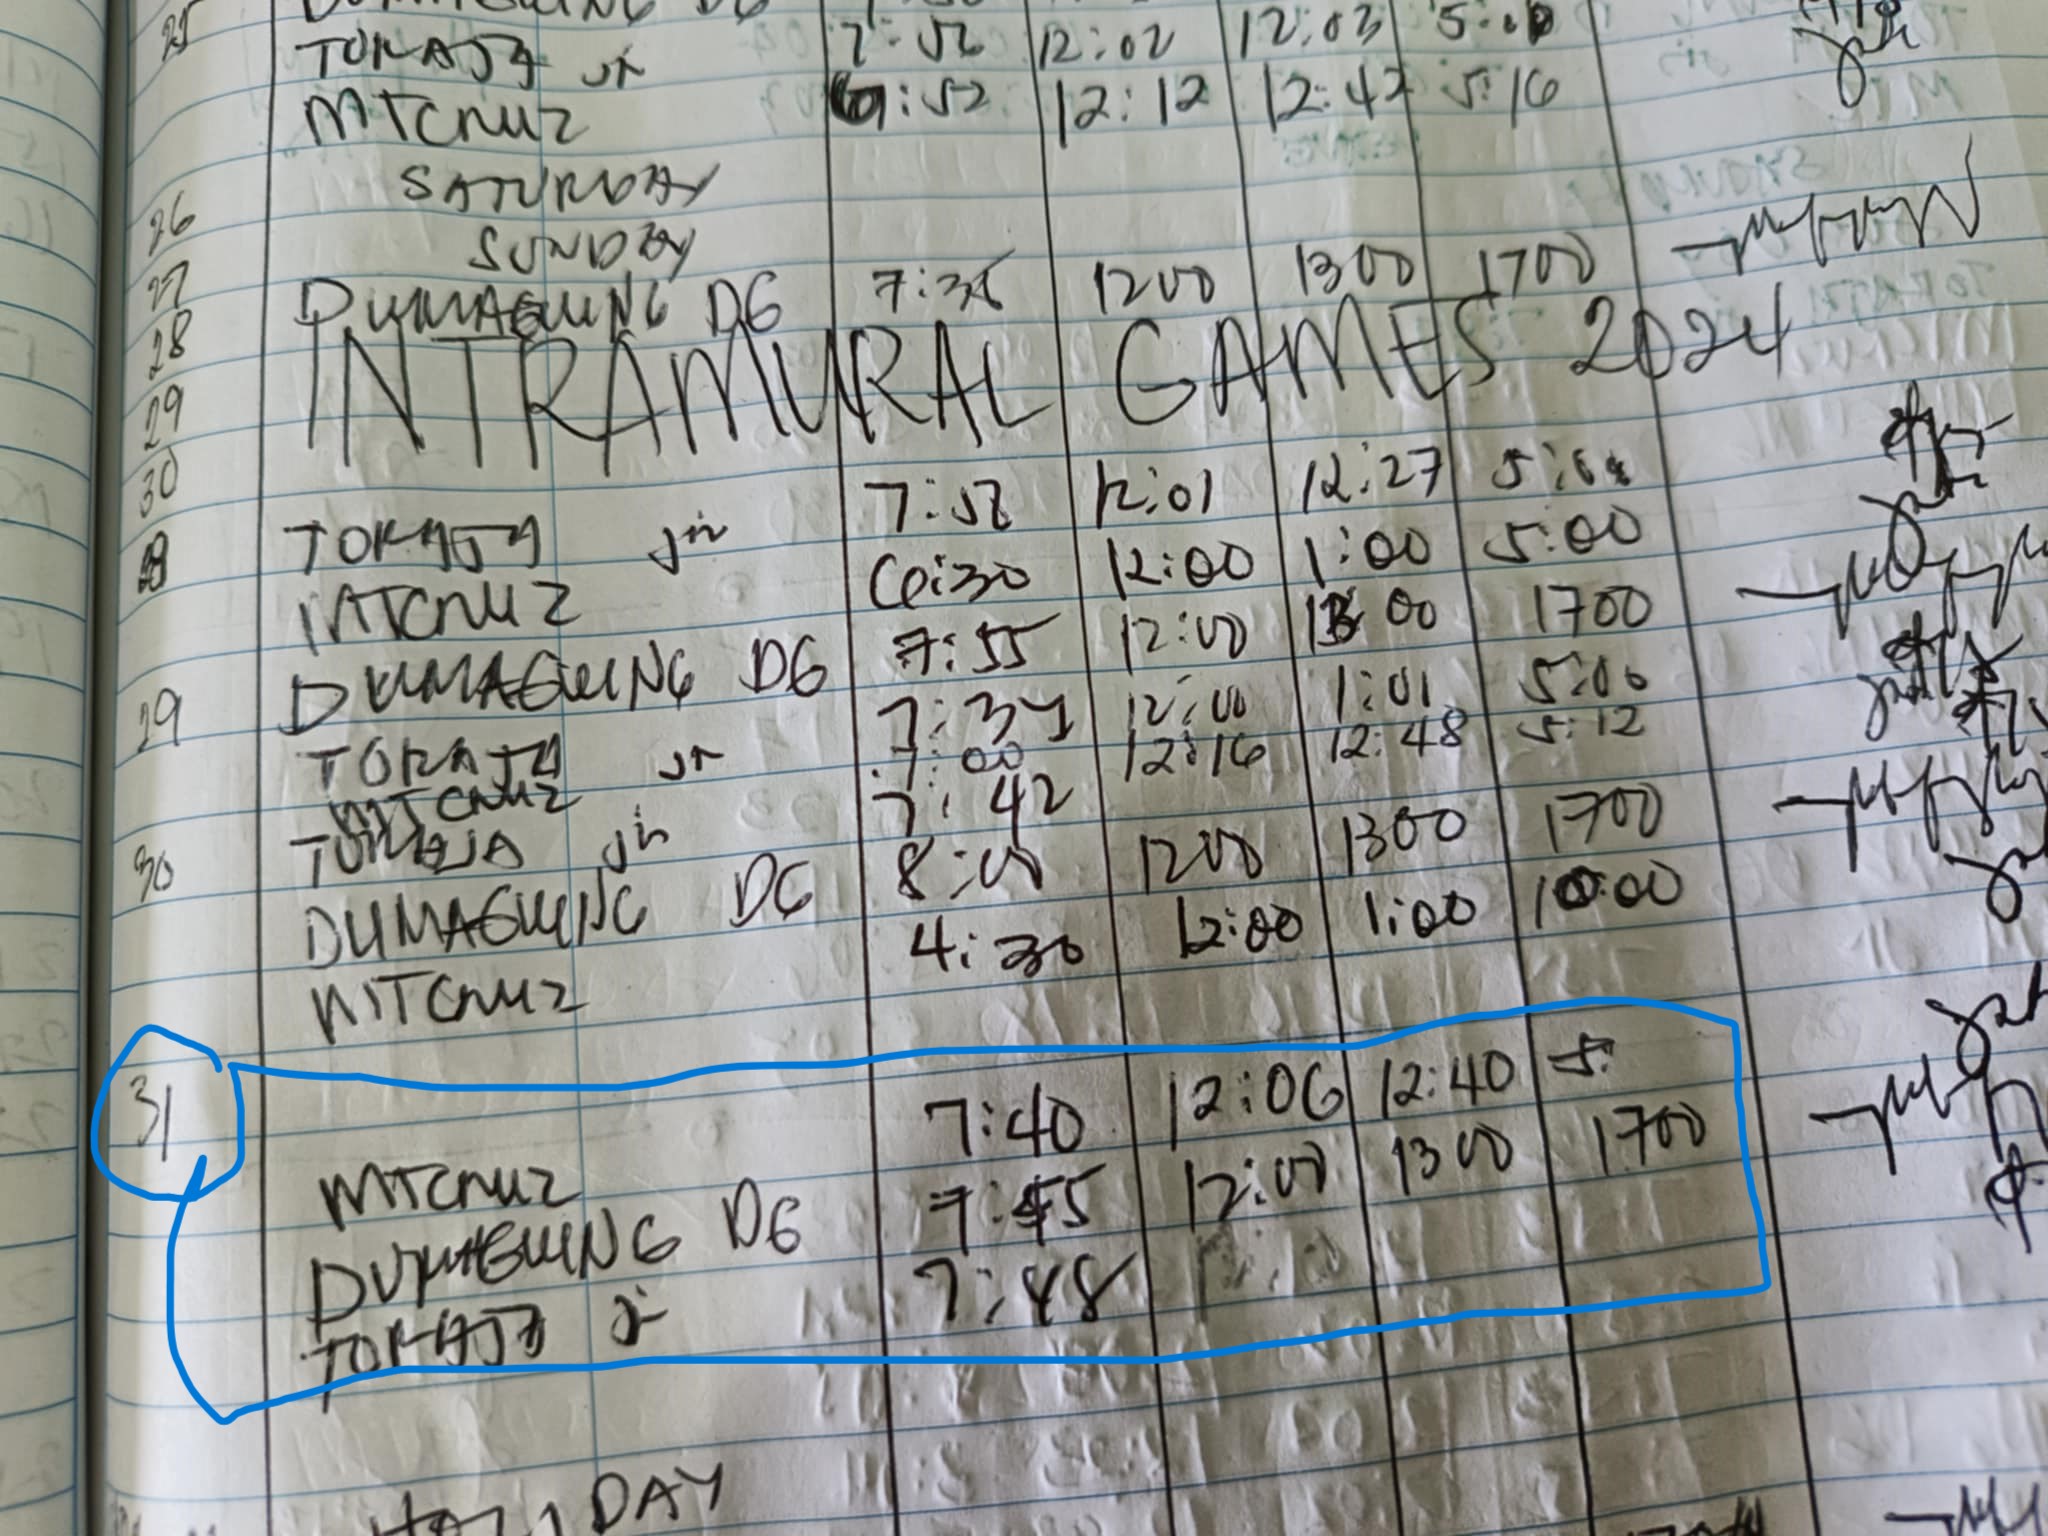 25 DUMAGUING DG
TORAJA Jr 7:52 12:02 12:03 5:00
MTCRUZ 6:52 12:12 12:42 5:16
26 SATURDAY
27 SUNDAY
28 DUMAGUING DG 7:35 1200 1300 1700
29 INTRAMURAL GAMES 2024
30
28 TORAJA Jr 7:52 12:01 12:27 5:00
MTCRUZ 6:30 12:00 1:00 5:00
DUMAGUING DG 7:55 12:00 13:00 1700
29 TORAJA Jr 7:34 12:00 1:01 5:00
MTCRUZ 7:00 12:16 12:48 5:12
30 TORAJA Jr 7:42
DUMAGUING DG 8:00 1200 1300 1700
MTCRUZ 4:30 12:00 1:00 10:00
31
MTCRUZ 7:40 12:06 12:40 5:
DUMAGUING DG 7:45 12:00 1300 1700
TORAJA Jr 7:48
DAY